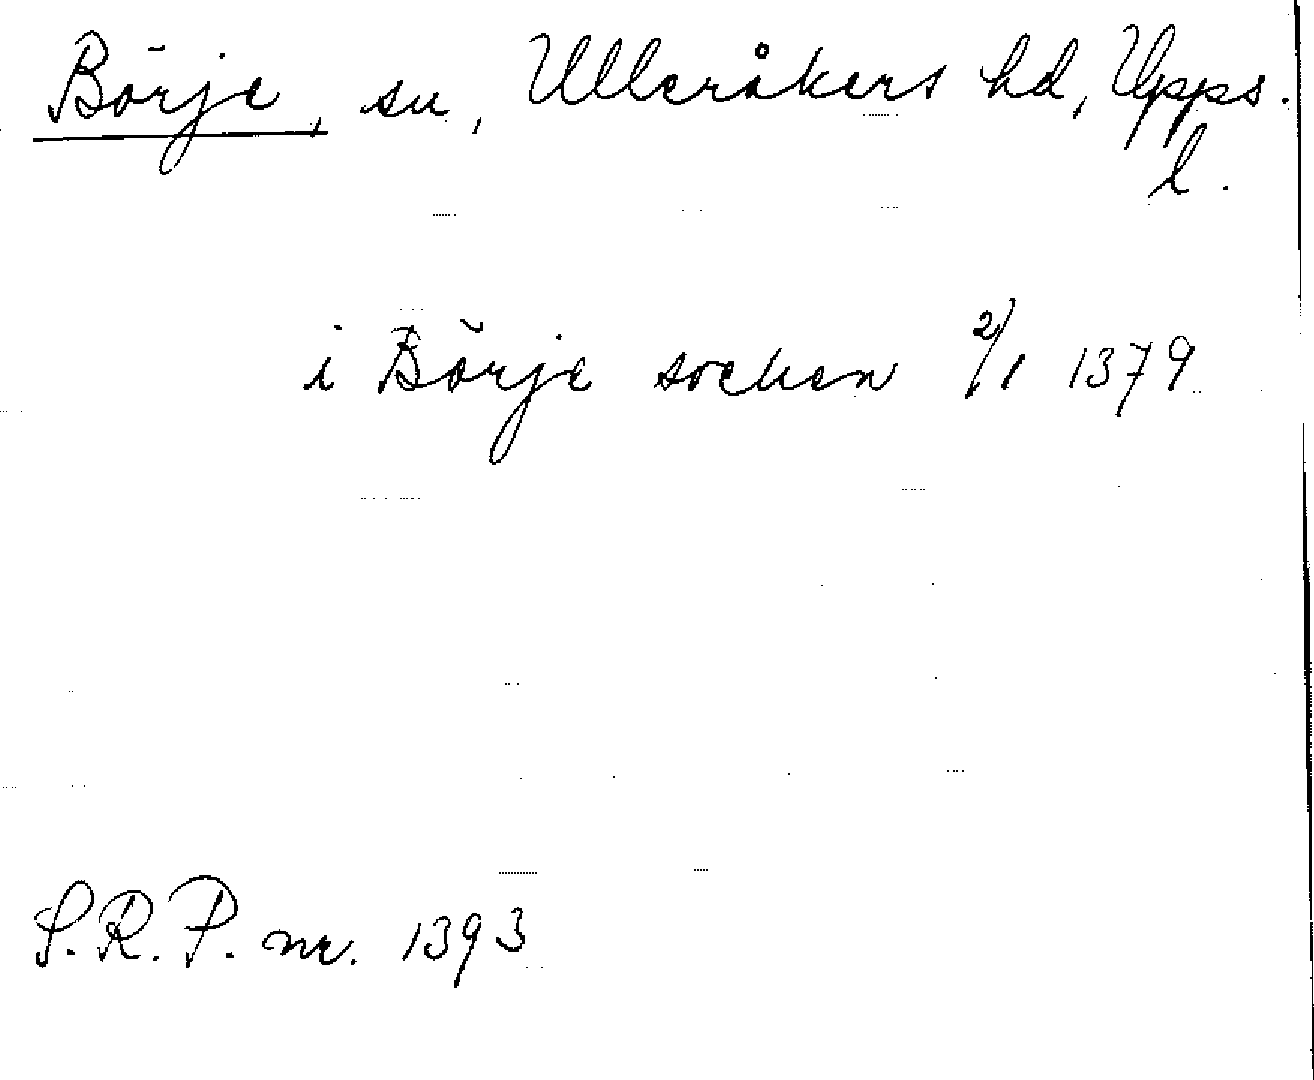 Börje, sn, Ulleråkers hd, Upps.
l.
i Börje sochen 2/1 1379
S.R.P. nr. 1393